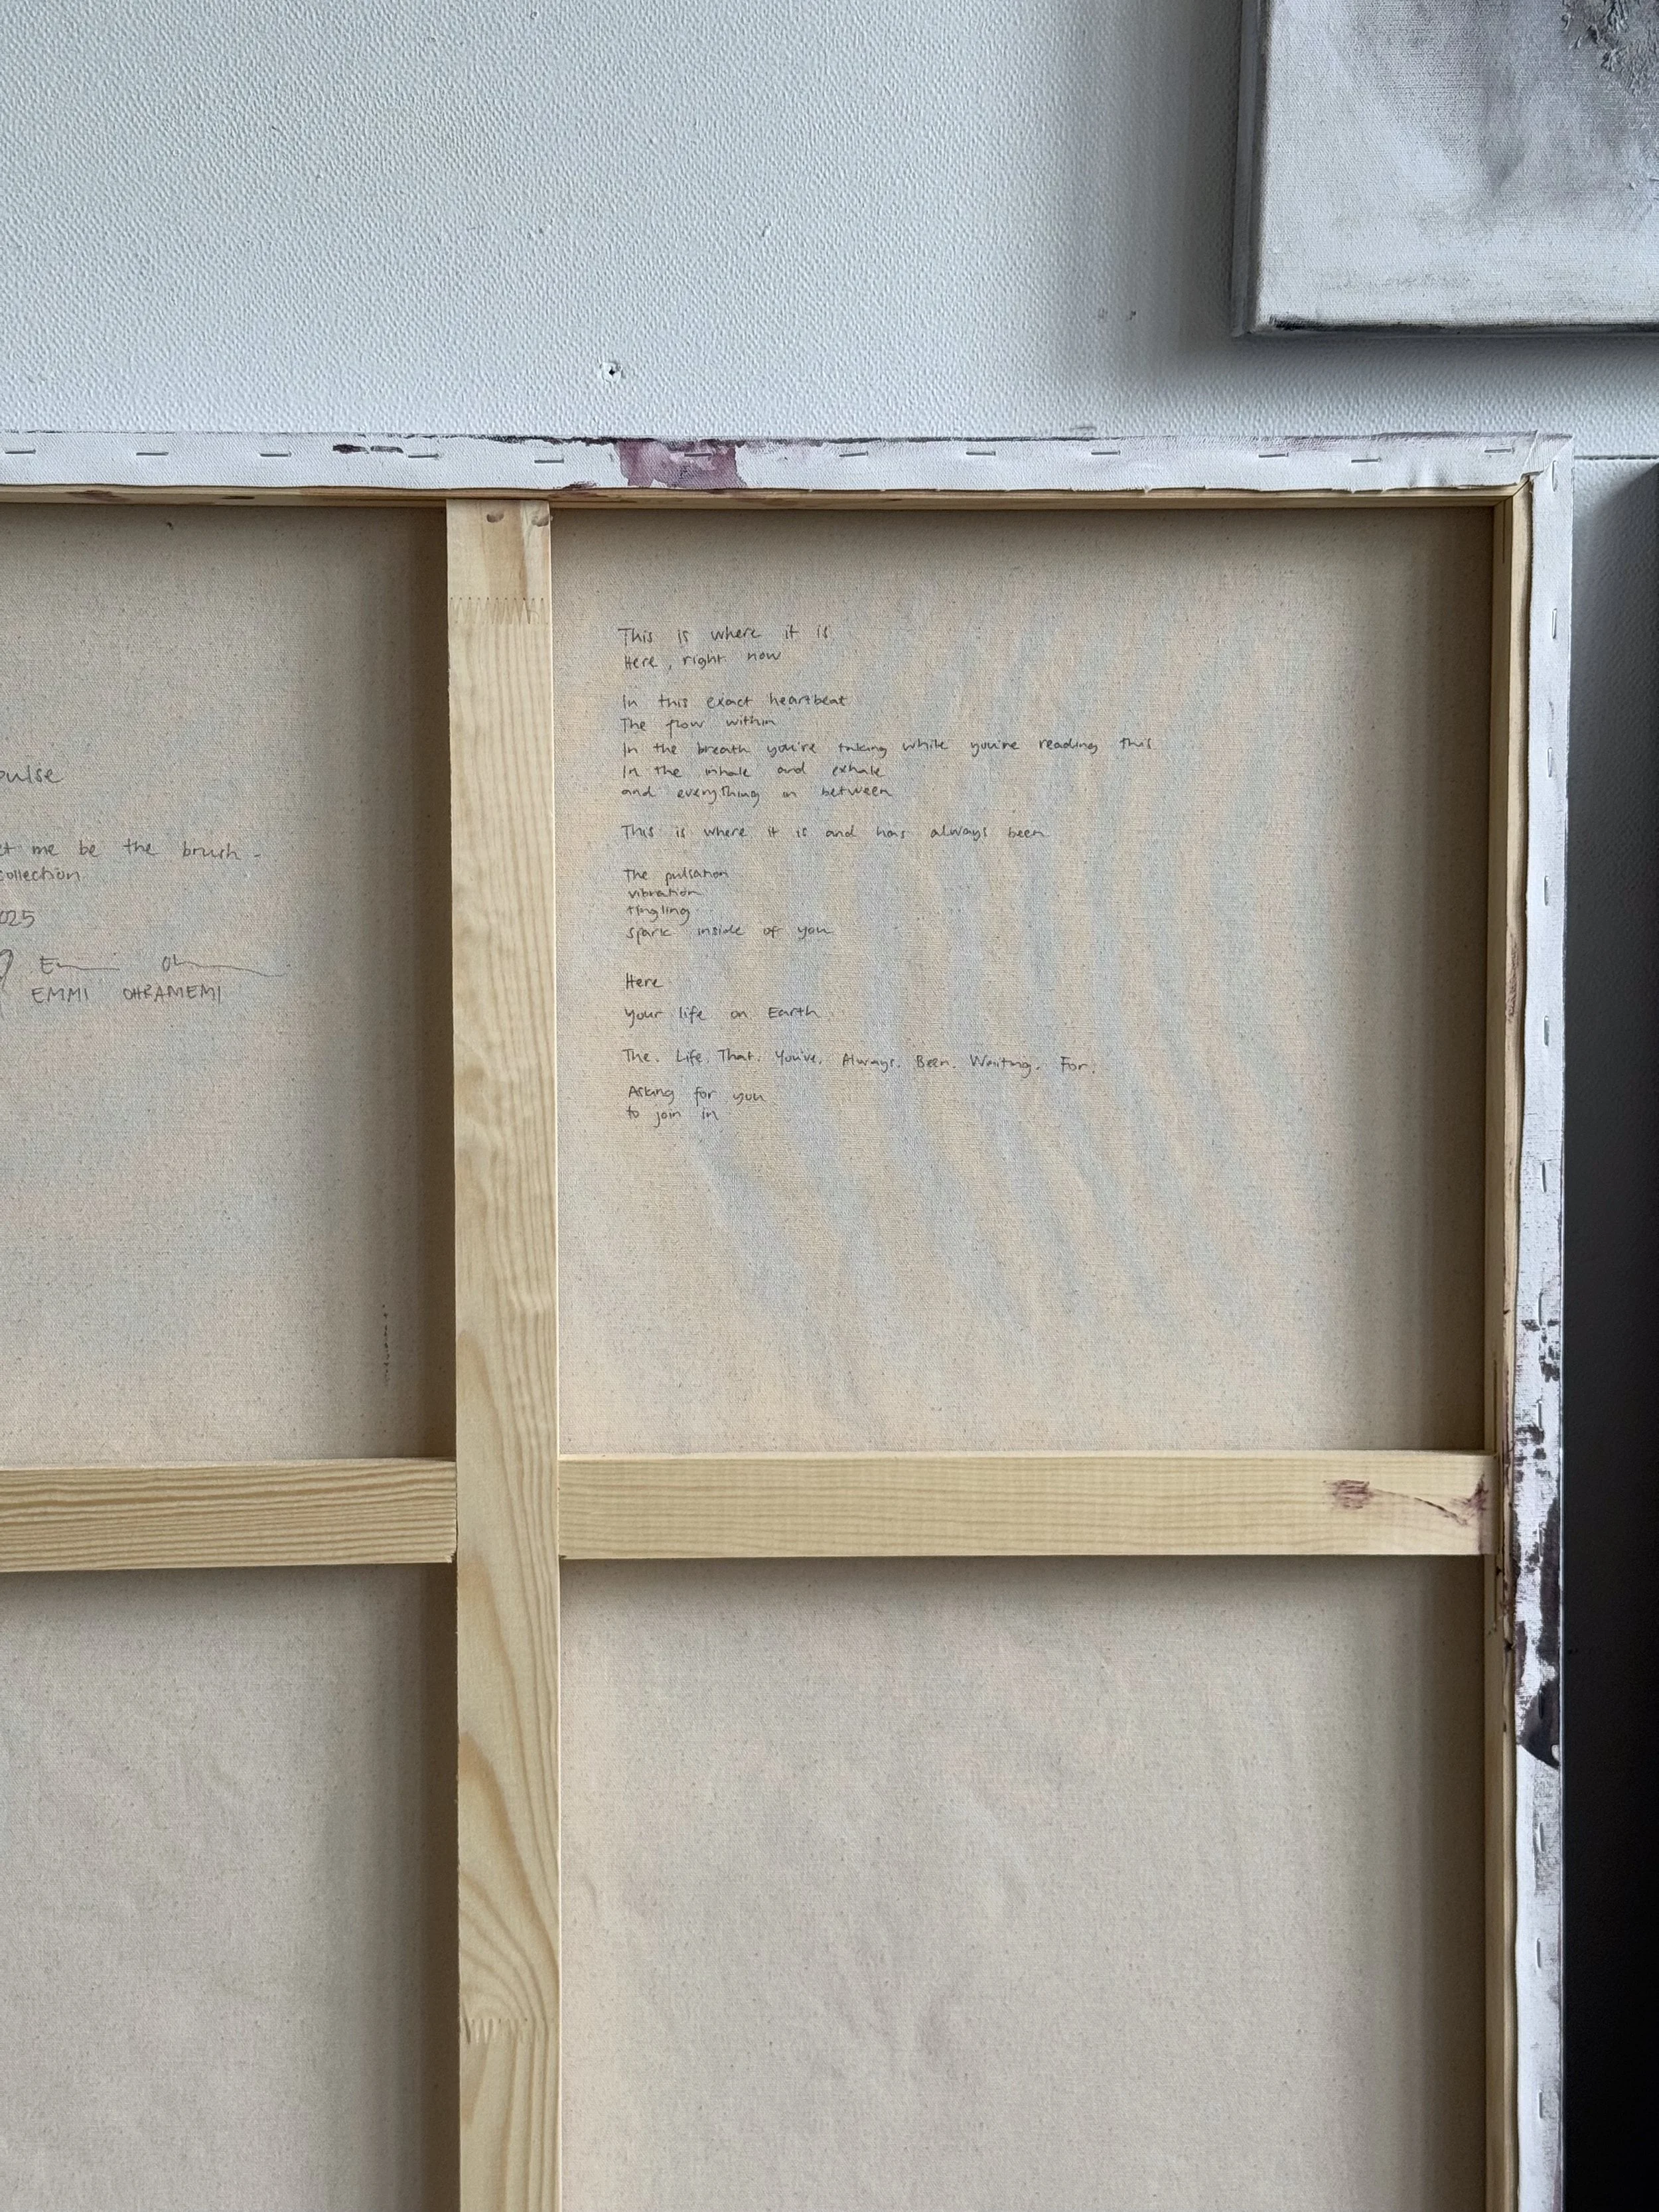 pulse
et me be the brush -
collection
025
EMMI OHRAMEMI
This is where it is
Here, right now
In this exact heartbeat
The flow within
In the breath you're taking while you're reading this
In the inhale and exhale
and everything in between
This is where it is and has always been
The pulsation
vibration
tingling
spark inside of you
Here
your life on Earth
The. Life. That. You've. Always. Been. Waiting. For.
Asking for you
to join in